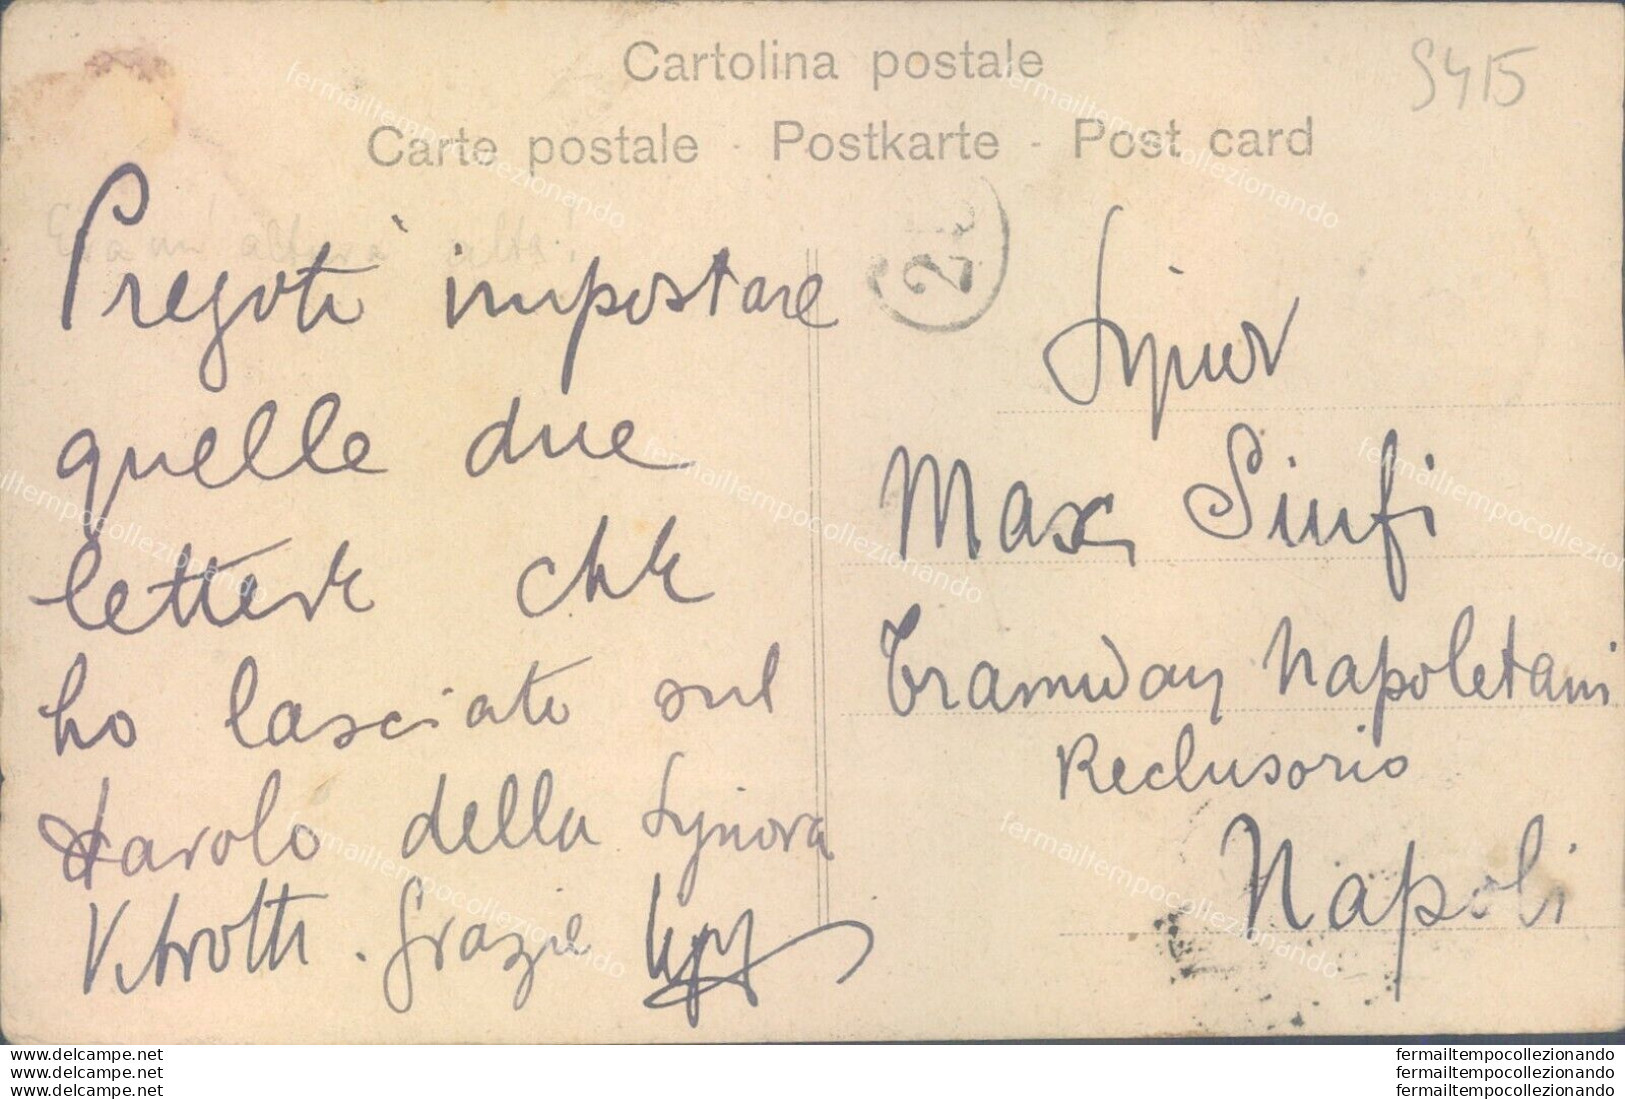 Cartolina postale
Carte postale - Postkarte - Post card
S415
Pregoti impostare
quelle due
lettere che
ho lasciato sul
tavolo della Signora
Vitrotti. Grazie
Signor
Max Sinfi
Tramway Napoletani
Reclusorio
Napoli
fermailtempocollezionando
www.delcampe.net
www.delcampe.net
www.delcampe.net
fermailtempocollezionando
fermailtempocollezionando
fermailtempocollezionando